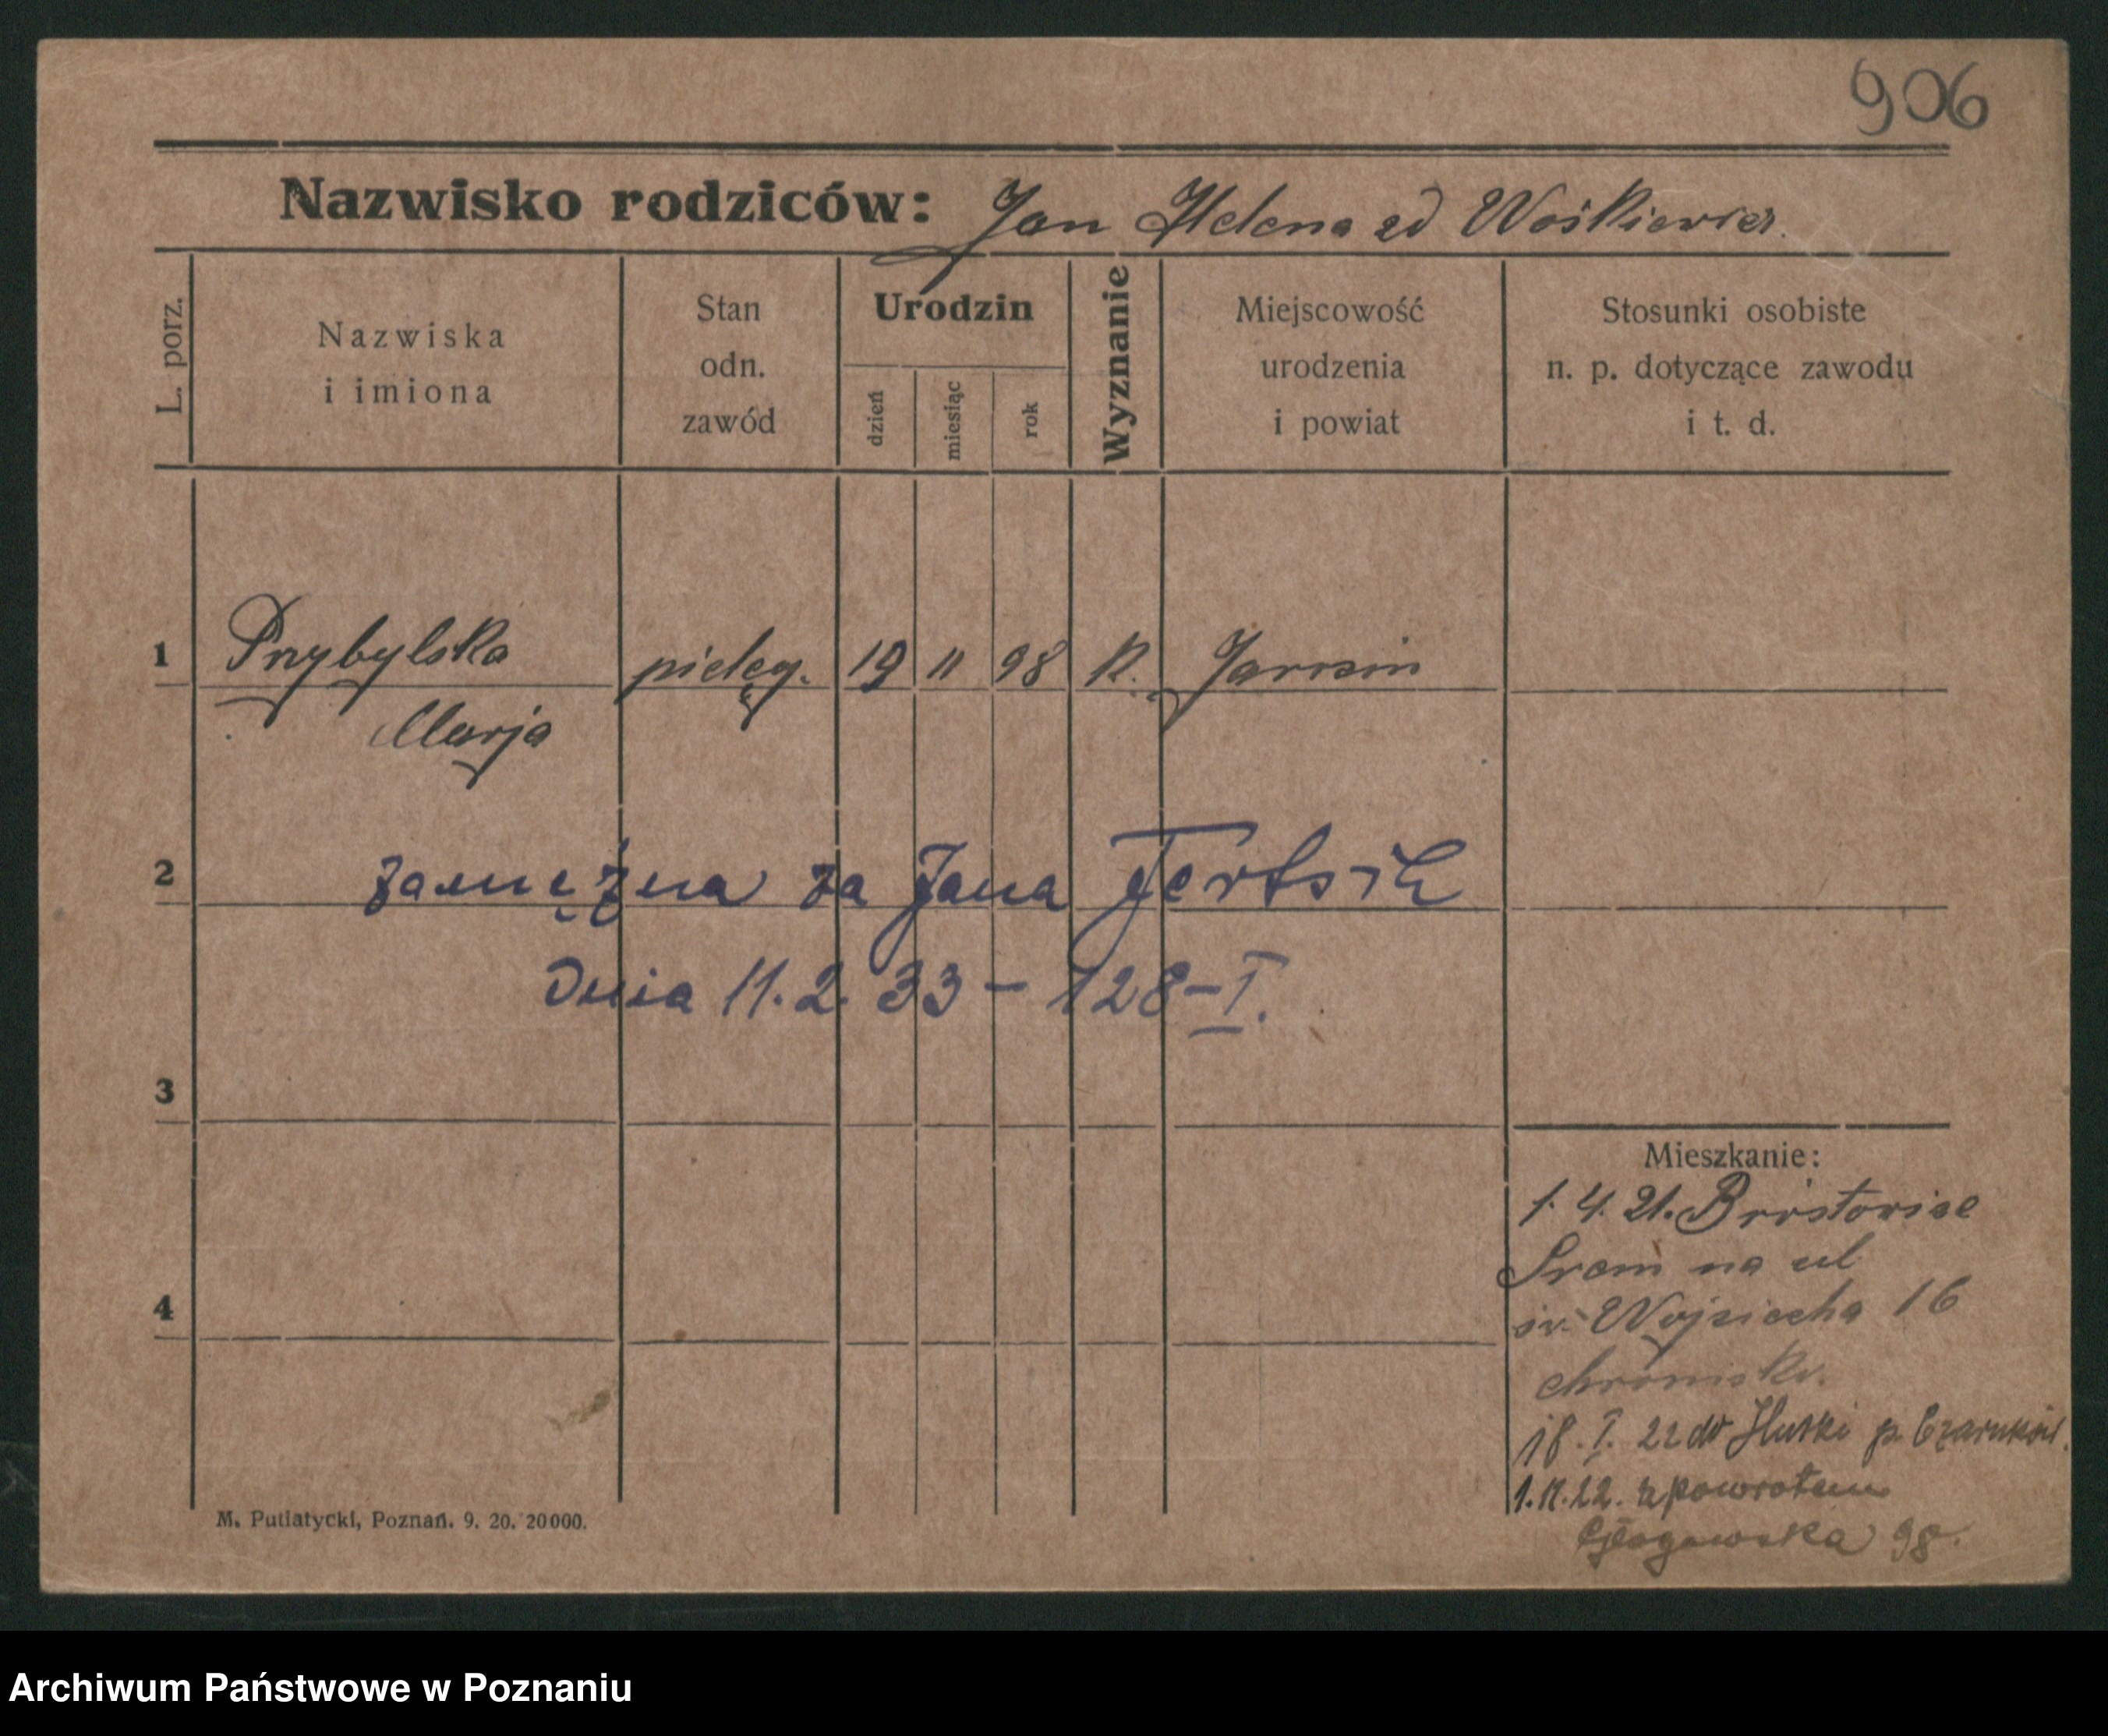 906
Nazwisko rodziców: Jan Helena zd Wośkiewicz.
L. porz.
Nazwiska
i imiona
Stan
odn.
zawód
Urodzin
dzień
miesiąc
rok
Wyznanie
Miejscowość
urodzenia
i powiat
Stosunki osobiste
n. p. dotyczące zawodu
i t. d.
1 Przybylska pielęg. 19 11 98 K. Jarocin
Marja
2 zamężna za Jana
Dnia 11.2.33 – 128–I.
3
Mieszkanie:
1. 4. 21.
Śrem na ul
św. Wojciecha 16
4
18. I. 22 do p. Czarnków.
22. z powrotem
Głogowska 98.
M. Putiatycki, Poznań. 9. 20. 20000.
Archiwum Państwowe w Poznaniu